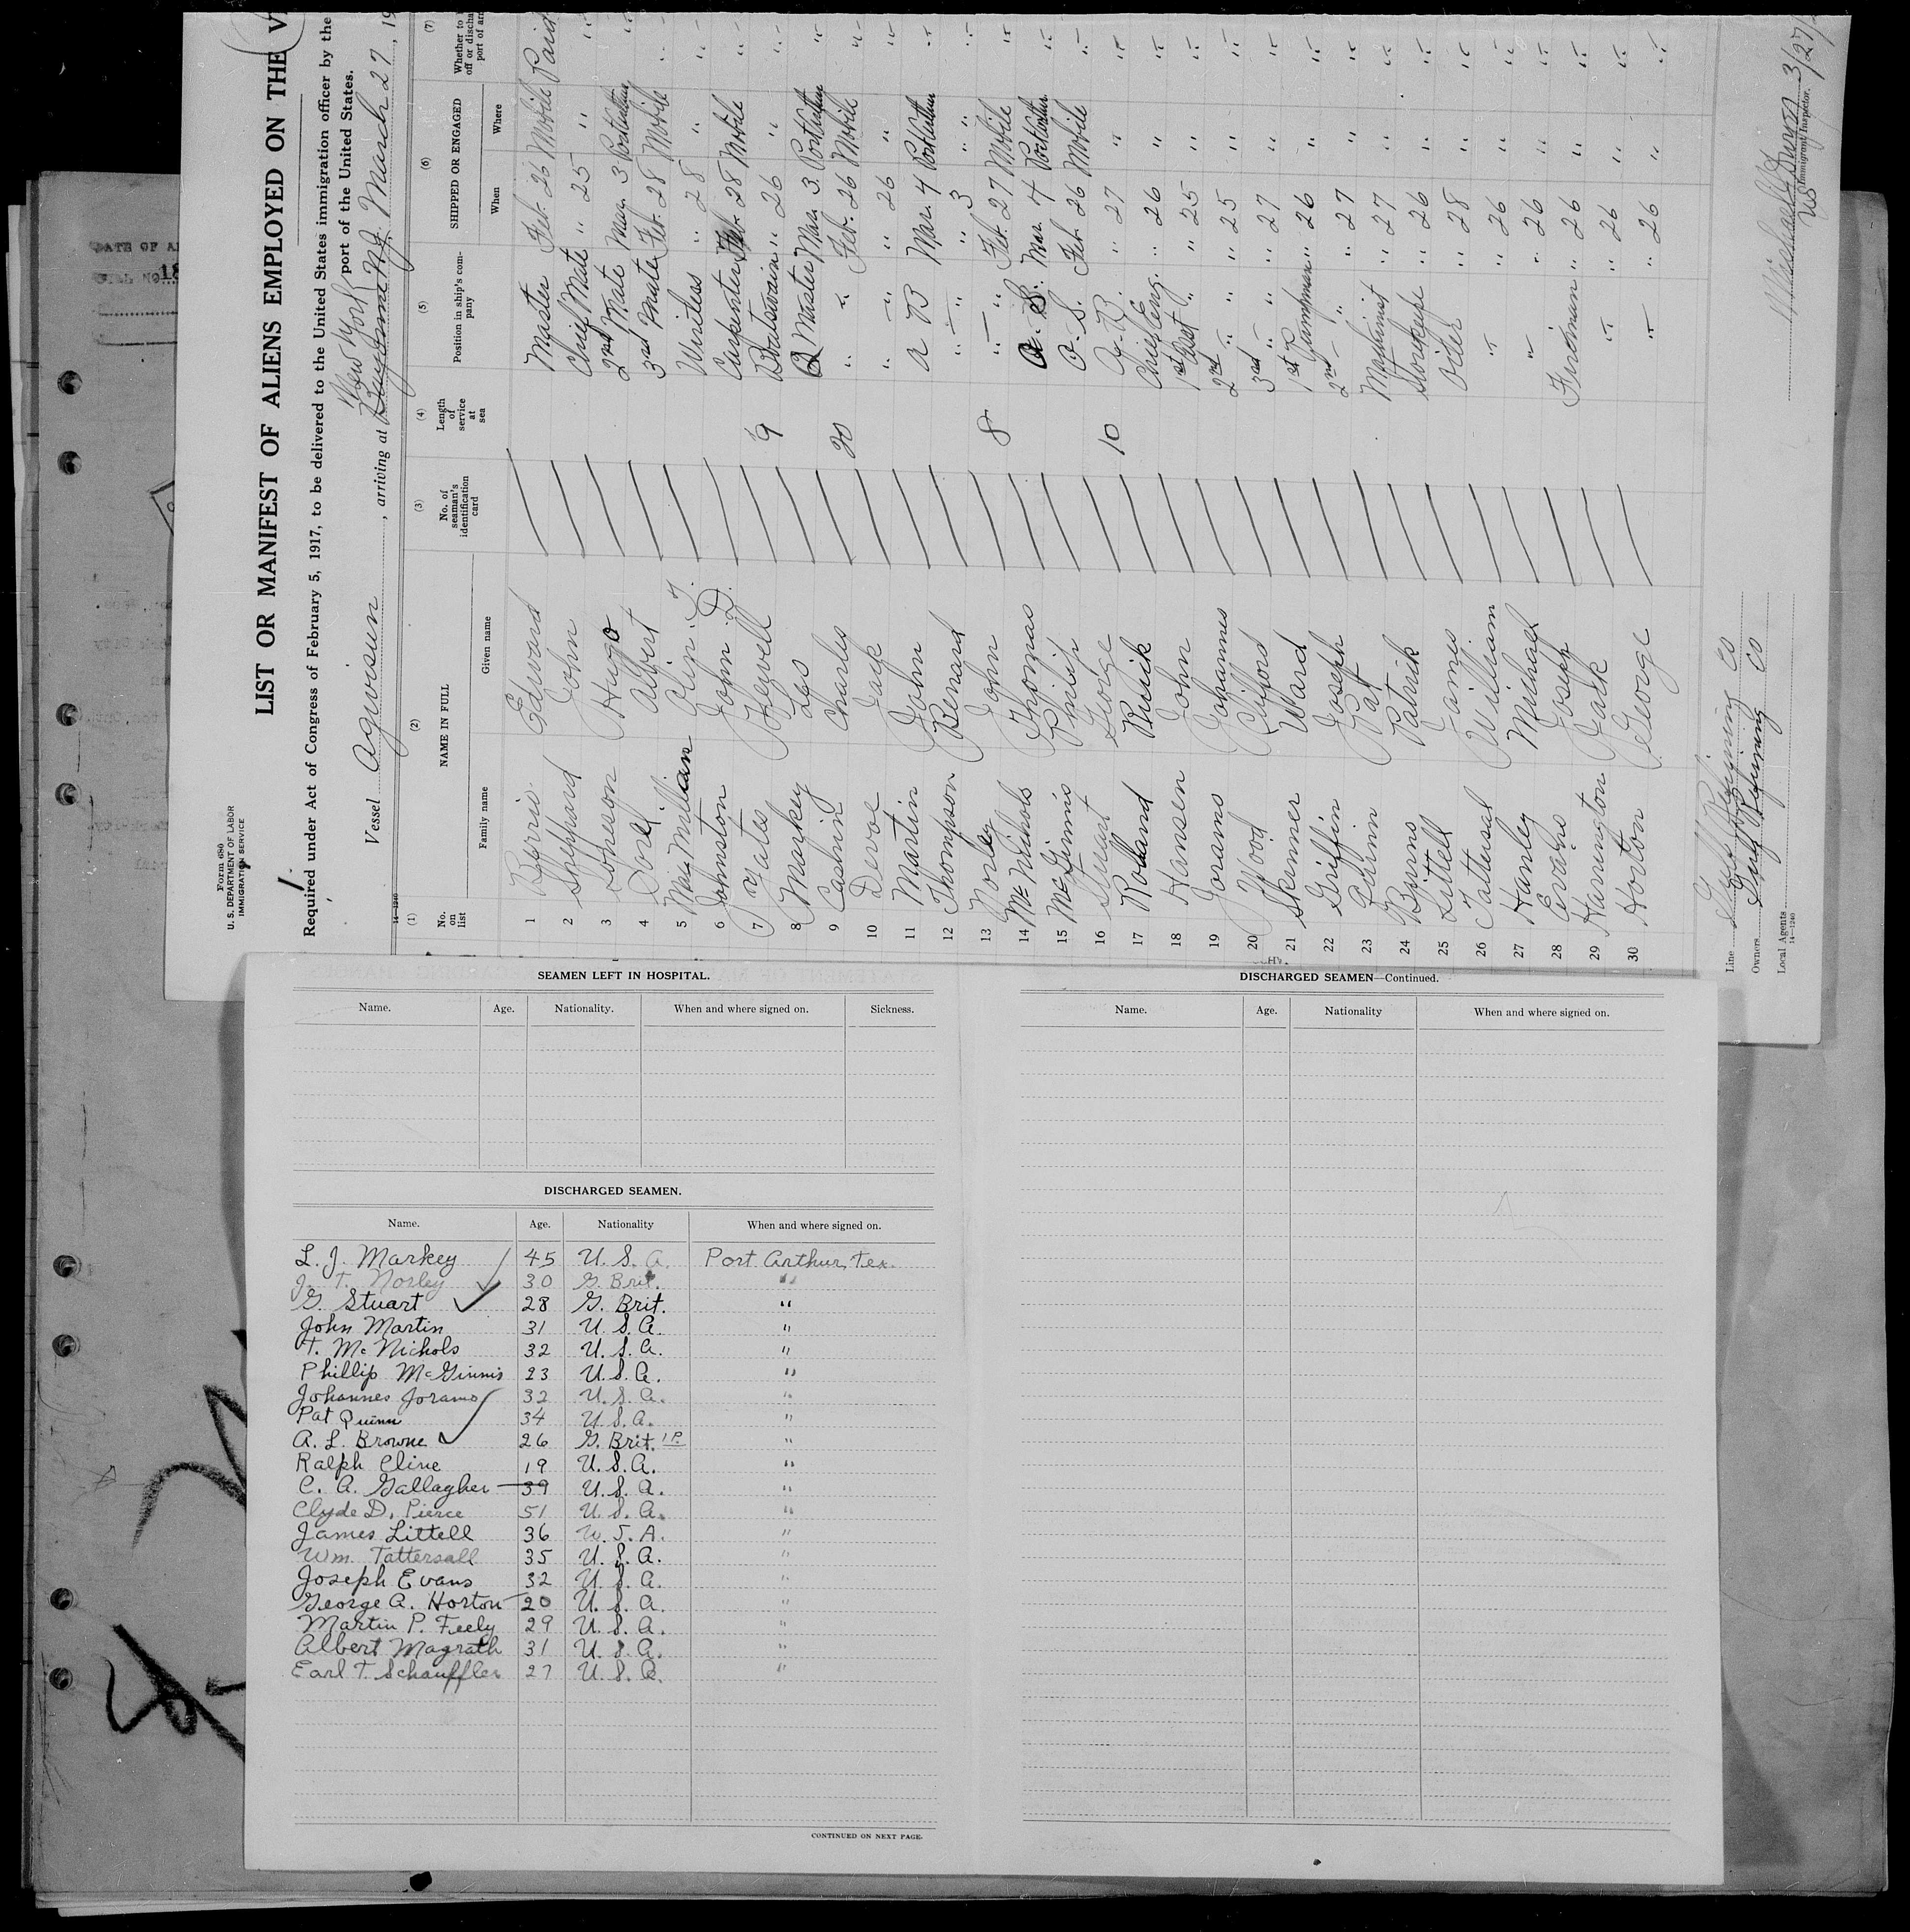 Form 680
U. S. DEPARTMENT OF LABOR
IMMIGRATION SERVICE
LIST OR MANIFEST OF ALIENS EMPLOYED ON THE
Required under Act of Congress of February 5, 1917, to be delivered to the United States immigration officer by the
port of the United States.
New York
Vessel Agwisun, arriving at N.J. March 27, 19
14—1240
(1) (2) (3) (4) (5) (6) (7)
No. on list
NAME IN FULL
Family name Given name
No. of seaman's identification card
Length of service at sea
Position in ship's company
SHIPPED OR ENGAGED
When Where
Whether to
off or discha
port of arr
1 Edward Master Feb. 26 Mobile Paid
2 Sheppard John Chief Mate " 25 " "
3 Hugo 2nd Mate Mar. 3 "
4 Albert 3rd Mate Feb. 28 Mobile "
5 MacMillian Wireless " 28 " "
6 Johnston John D. Carpenter Feb. 28 Mobile "
7 Yates Hewell 9 Boatswain " 26 " "
8 Markey Leo Q Master Mar. 3. "
9 Cashin Charles 20 " Feb. 26 Mobile "
10 Devoe Jack " " 26 " "
11 Martin John A B Mar. 4 "
12 Thompson Benard " " 3 " "
13 Norley John 8 " Feb. 27 Mobile "
14 McNichols Thomas Mar. 4 "
15 McGinnis Philip O. S. Feb. 26 Mobile "
16 Stuart George 10 " 27 " "
17 Rolland Chief Eng. " 26 " "
18 Hansen John 1st Asst " " 25 " "
19 Jorams Johannes 2nd " " 25 " "
20 Wood Clifford 3rd " " 27 " "
21 Skinner Ward 1st P " 26 " "
22 Griffin Joseph 2nd " " 27 " "
23 Pat Machinist " 27 " "
24 Binns Patrick " 26 " "
25 Littell James Oiler " 28 " "
26 Tattersal William " " 26 " "
27 Hanley Michael " " 26 " "
28 Evans Joseph Fireman " 26 " "
29 Harrington Jack " " 26 " "
30 Horton George " " 26 " "
Line Gulf Refining Co
Owners Gulf Refining Co
Local Agents
14—1240
3/27/
Immigrant Inspector.
DATE OF A
SEAMEN LEFT IN HOSPITAL.
Name. Age. Nationality. When and where signed on. Sickness.
DISCHARGED SEAMEN.
Name. Age. Nationality When and where signed on.
L. J. Markey 45 U. S. A. Port Arthur, Tex.
J. T. Norley 30 G. Brit. "
G. Stuart 28 G. Brit. "
John Martin 31 U. S. A. "
T. McNichols 32 U. S. A. "
Phillip McGinnis 23 U. S. A. "
Johannes Jorams 32 U. S. A. "
Pat Quinn 34 U. S. A. "
A. L. Browne 26 G. Brit. 1 P. "
Ralph Cline 19 U. S. A. "
C. A. Gallagher 39 U. S. A. "
Clyde D. Pierce 51 U. S. A. "
James Littell 36 U. S. A. "
Wm. Tattersall 35 U. S. A. "
Joseph Evans 32 U. S. A. "
George A. Horton 20 U. S. A. "
Martin P. Feely 29 U. S. A. "
Albert Magrath 31 U. S. A. "
Earl T. Schauffler 27 U. S. A. "
CONTINUED ON NEXT PAGE.
DISCHARGED SEAMEN—Continued.
Name. Age. Nationality When and where signed on.